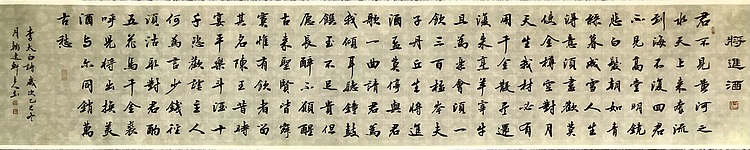 將進酒
君不見黃河之
水天上來奔流
到海不復回君
不見高堂明鏡
悲白髮朝如青
絲暮成雪人生
得意須盡歡莫
使金樽空對月
天生我材必有
用千金散盡還
復來烹羊宰牛
且為樂會須一
飲三百杯岑夫
子丹丘生將進
酒盃莫停與君
歌一曲請君為
我傾耳聽鐘鼓
饌玉不足貴但
願長醉不願醒
古來聖賢皆寂
寞惟有飲者留
其名陳王昔時
宴平樂斗酒十
千恣歡謔主人
何為言少錢徑
須沽取對君酌
五花馬千金裘
呼兒將出換美
酒與爾同銷萬
古愁
李太白詩歲次乙巳年
月